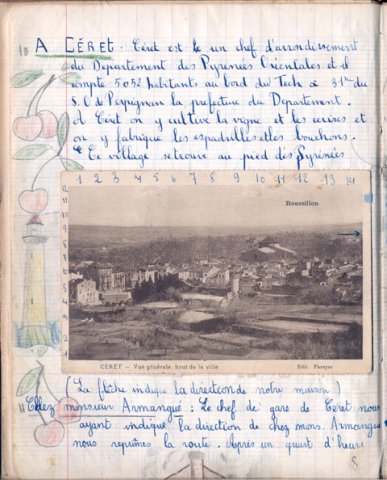 10 A CÉRET. Céret est le un chef d'arrondissement
du Departement des Pyrenées Orientales et il
compte 5052 habitants au bord du Tech à 31 km du
S.O de Perpignan la prefecture du Departement.
A Céret on y cultive la vigne et les cerises et
on y fabrique les espadrilles et les bouchons.
Ce village se trouve au pied des Pyrénées
1 2 3 4 5 6 7 8 9 10 11 12 13 14
Roussillon
CERET - Vue générale haut de la ville
Edit. Parayre
(La flèche indique la direction de notre maison)
11 Chez monsieur Armangué : Le chef de gare de Céret nous
ayant indiqué la direction de chez mons. Armangué
nous reprîmes la route. Après un quart d'heure
8